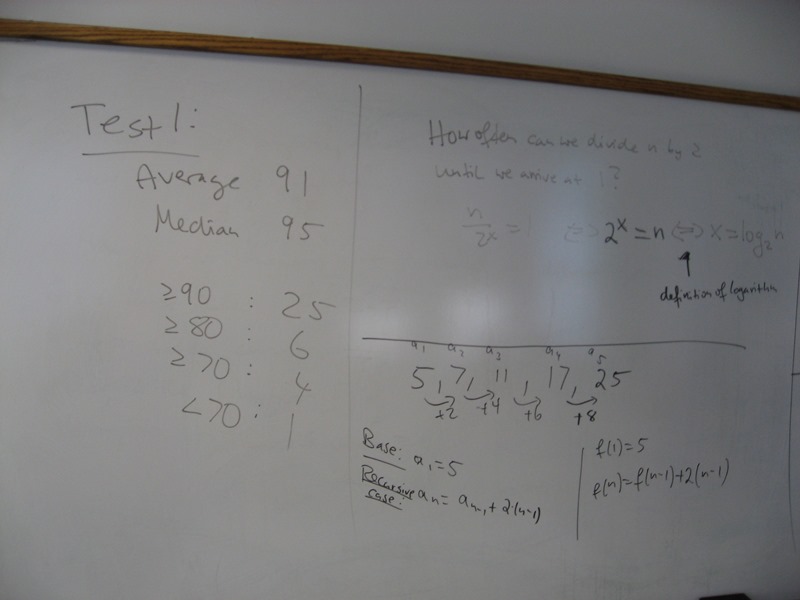 Test 1:
Average 91
Median 95
≥90 : 25
≥80 : 6
≥70 : 4
<70 : 1
How often can we divide n by 2
until we arrive at 1?
n/2^x = 1 ⇔ 2^x = n ⇔ x = log₂n
definition of logarithm
a₁ a₂ a₃ a₄ a₅
5, 7, 11, 17, 25
+2 +4 +6 +8
Base: a₁ = 5
Recursive case: aₙ = aₙ₋₁ + 2(n-1)
f(1) = 5
f(n) = f(n-1) + 2(n-1)